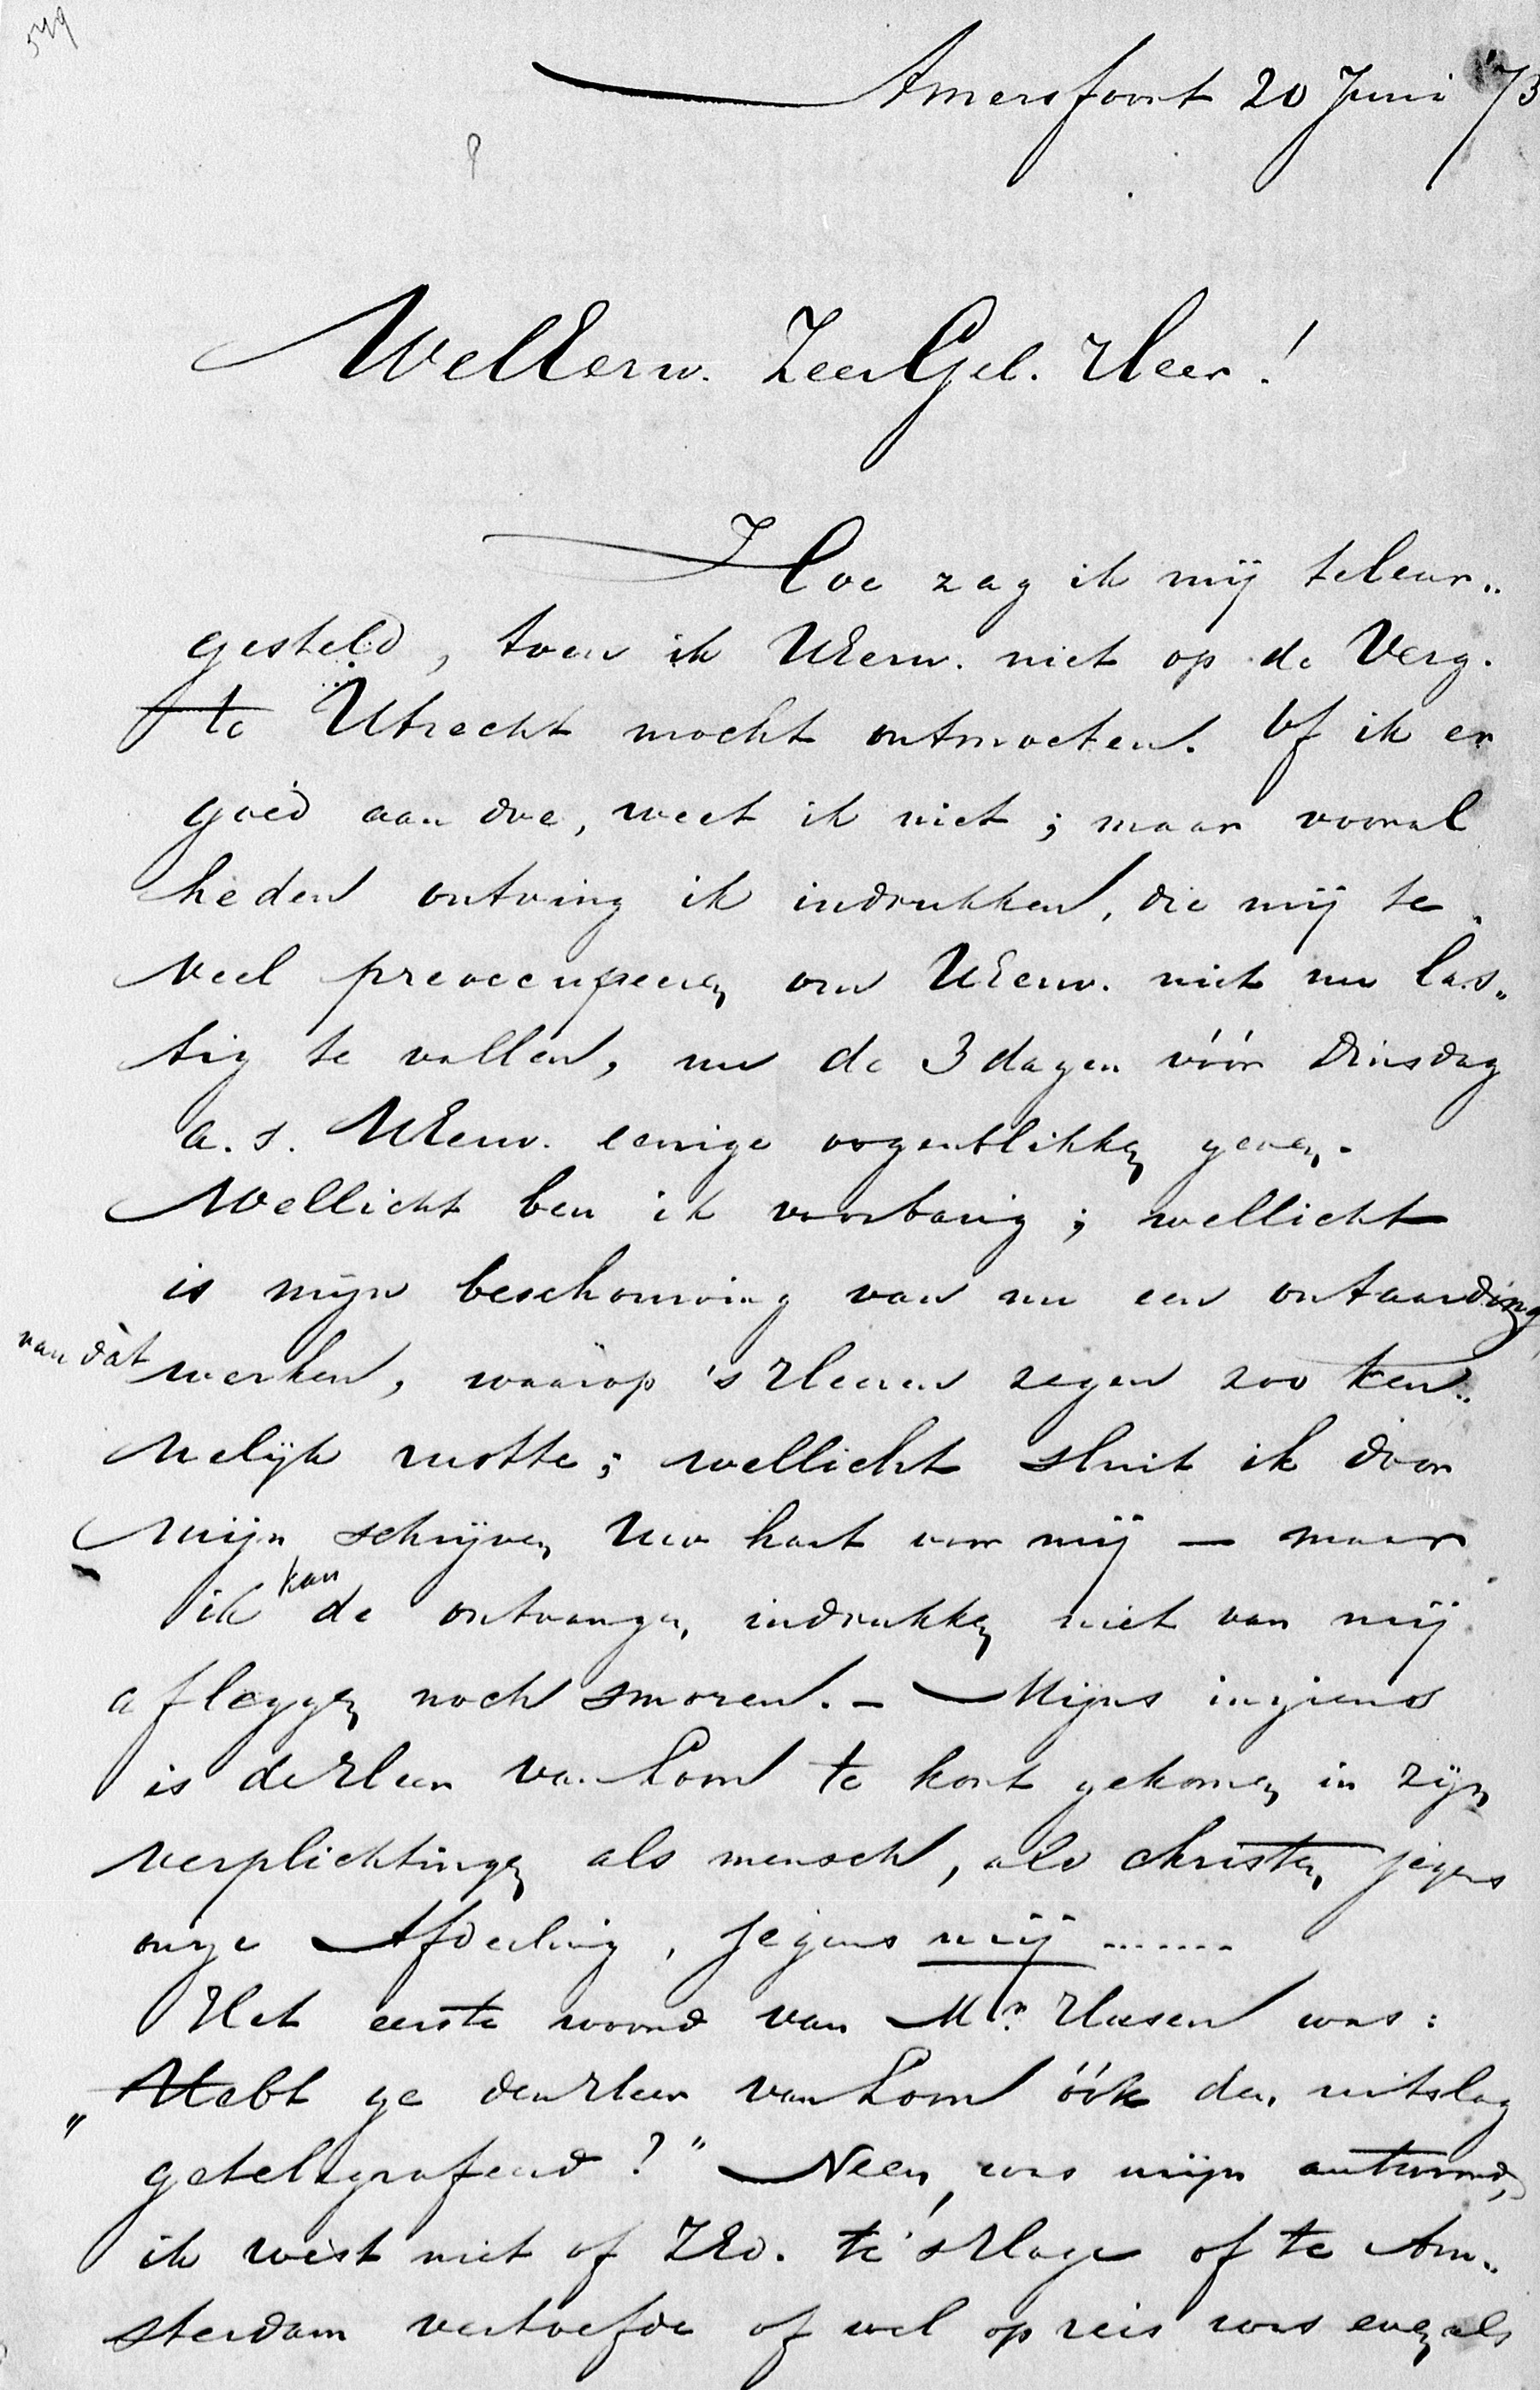 549
Amersfoort 20 Juni '73
WelEerw. ZeerGel. Heer!
Hoe zag ik mij teleur„
gesteld, toen ik UEerw. niet op de Verg.
te Utrecht mocht ontmoeten. Of ik er
goed aan doe, weet ik niet; maar vooral
heden ontving ik indrukken, die mij te
veel preoccupeeren om UEerw. niet nu las„
tig te vallen, nu de 3 dagen vóór Dinsdag
a.s. UEerw. eenige oogenblikken geven.
Wellicht ben ik voorbarig; wellicht
is mijn beschouwing van nu een ontaarding
van dàt werken, waarop 's Heeren zegen zoo ken„
nelijk rustte; wellicht sluit ik door
mijn schrijven Uw hart voor mij — maar
ik kan de ontvangen indrukken niet van mij
afleggen noch smoren. — Mijns inziens
is de Heer van Lom te kort gekomen in zijn
verplichtingen als mensch, als christen jegens
onze Afdeeling, jegens mij .......
Het eerste woord van Mr. Hasen was:
„Hebt ge den Heer van Lom óók den uitslag
getelegrafeerd?" Neen, was mijn antwoord,
ik wist niet of ZEd. te 's Hage of te Am„
sterdam vertoefde of wel op reis was evenals